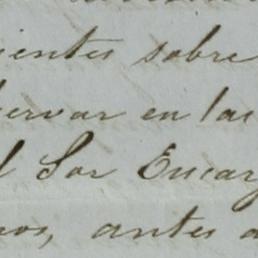 ientes sobre
servar en las
l Sor Encar
nos, antes d